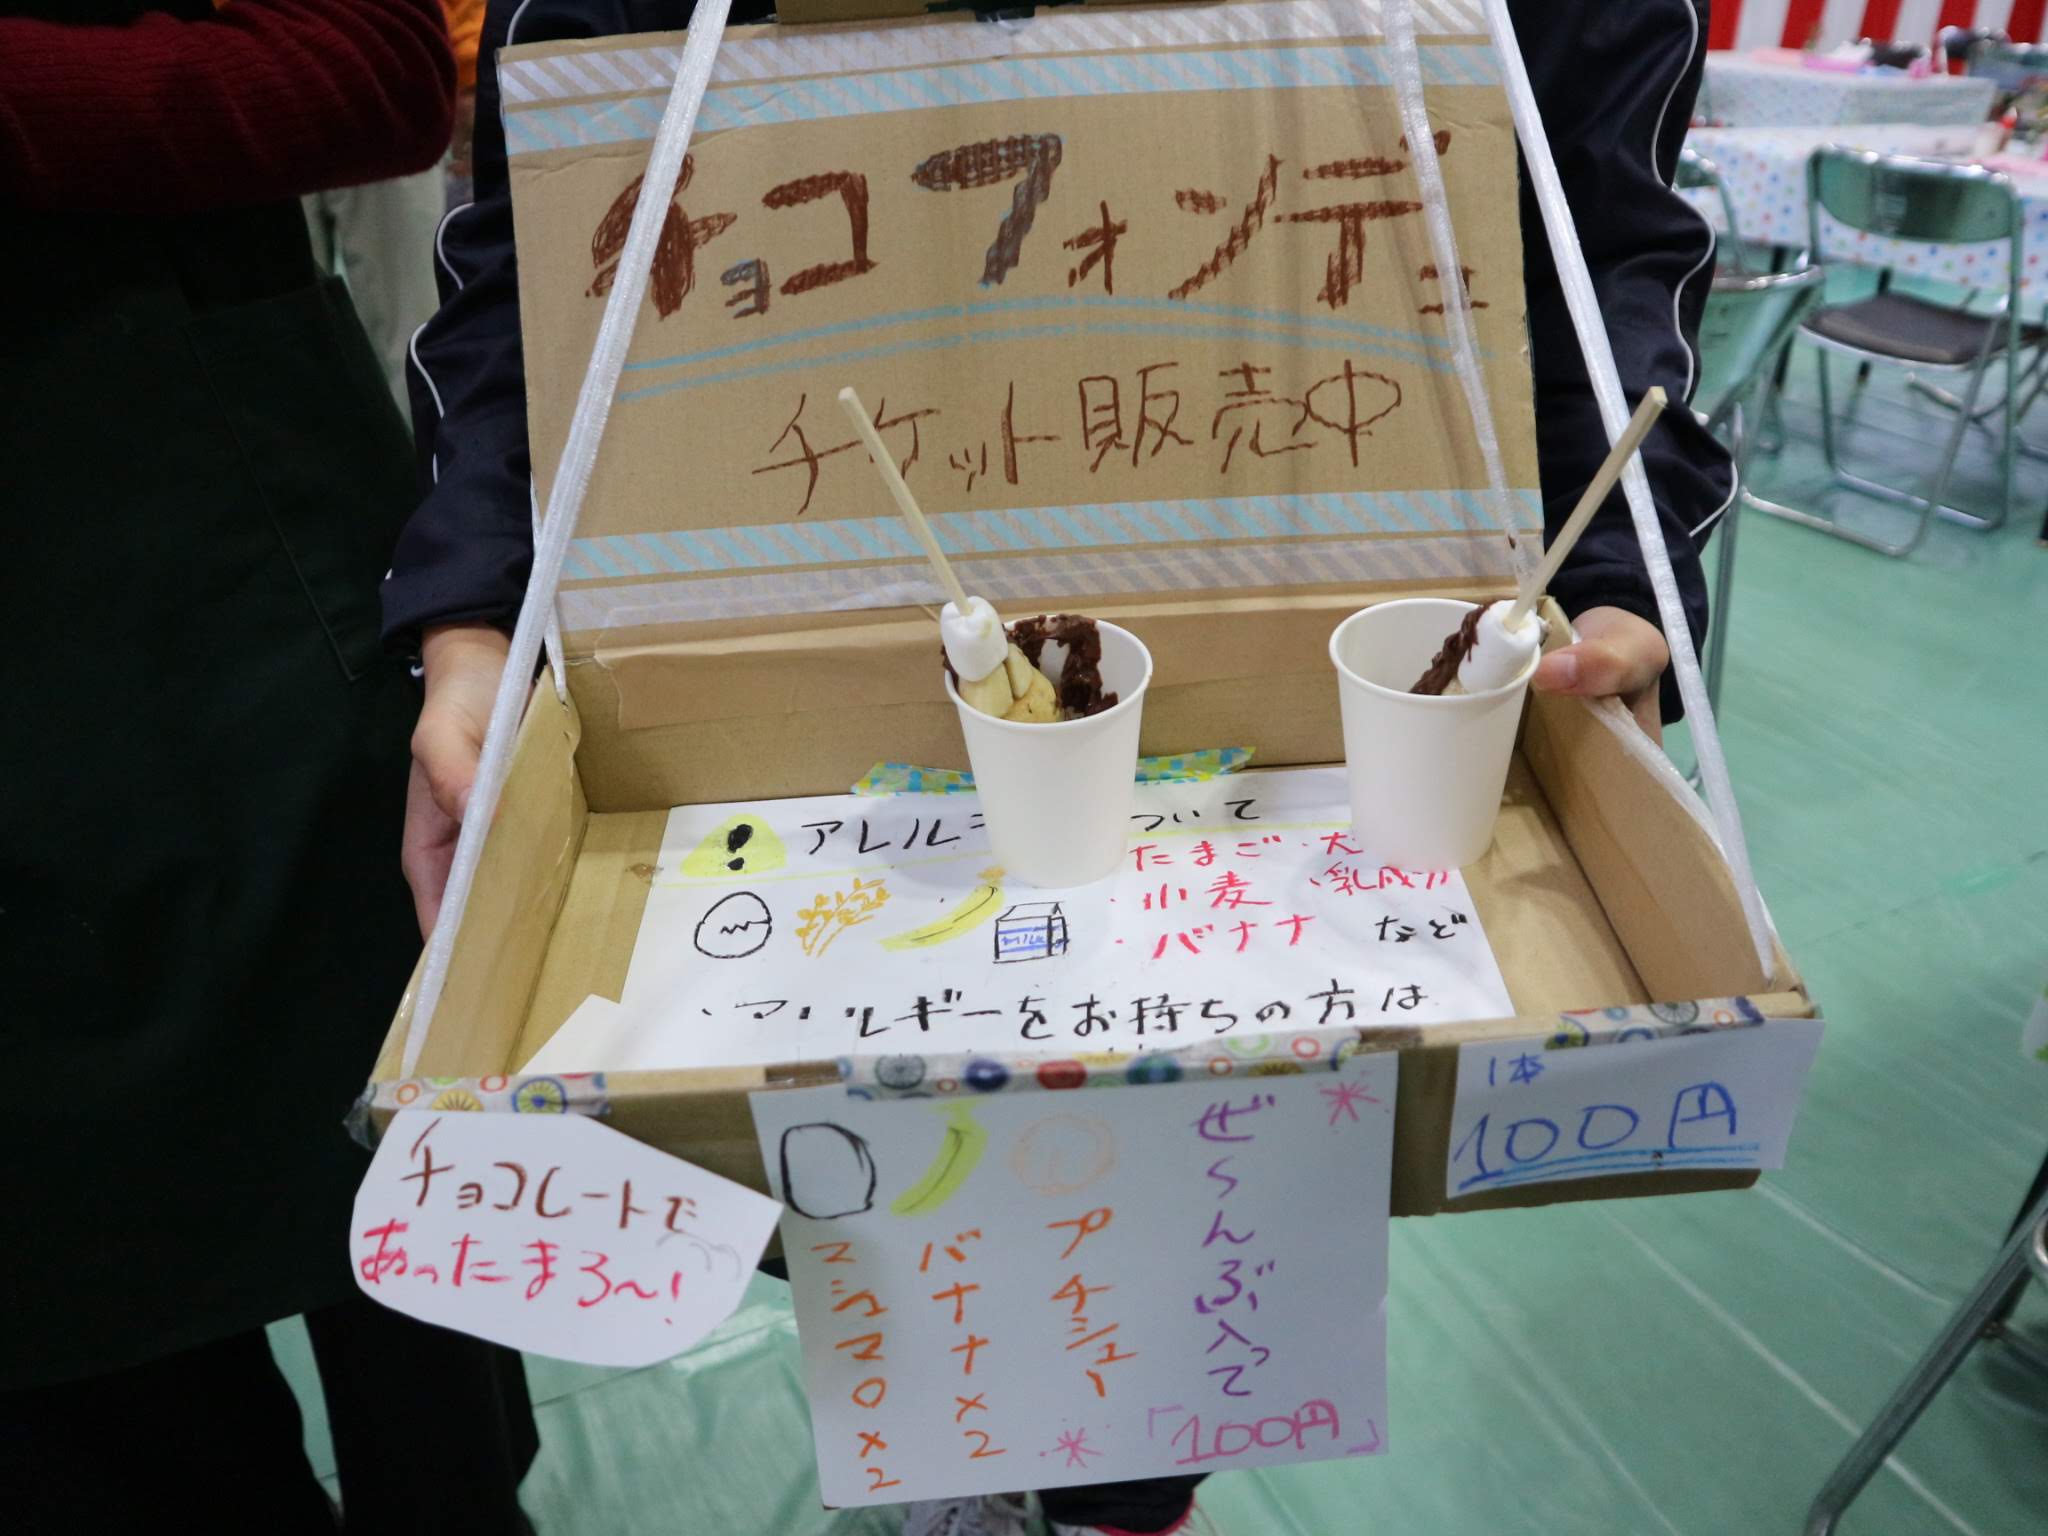 チョコフォンデュ
チケット販売中
アレル
ついて
たまご・大
小麦
・乳成分
・バナナ など
MILK
ルギーをお持ちの方は
1本
100円
チョコレートで
あったまろ〜!
マシュマロ×2
バナナ×2
プチシュー
ぜ〜んぶ入って
「100円」